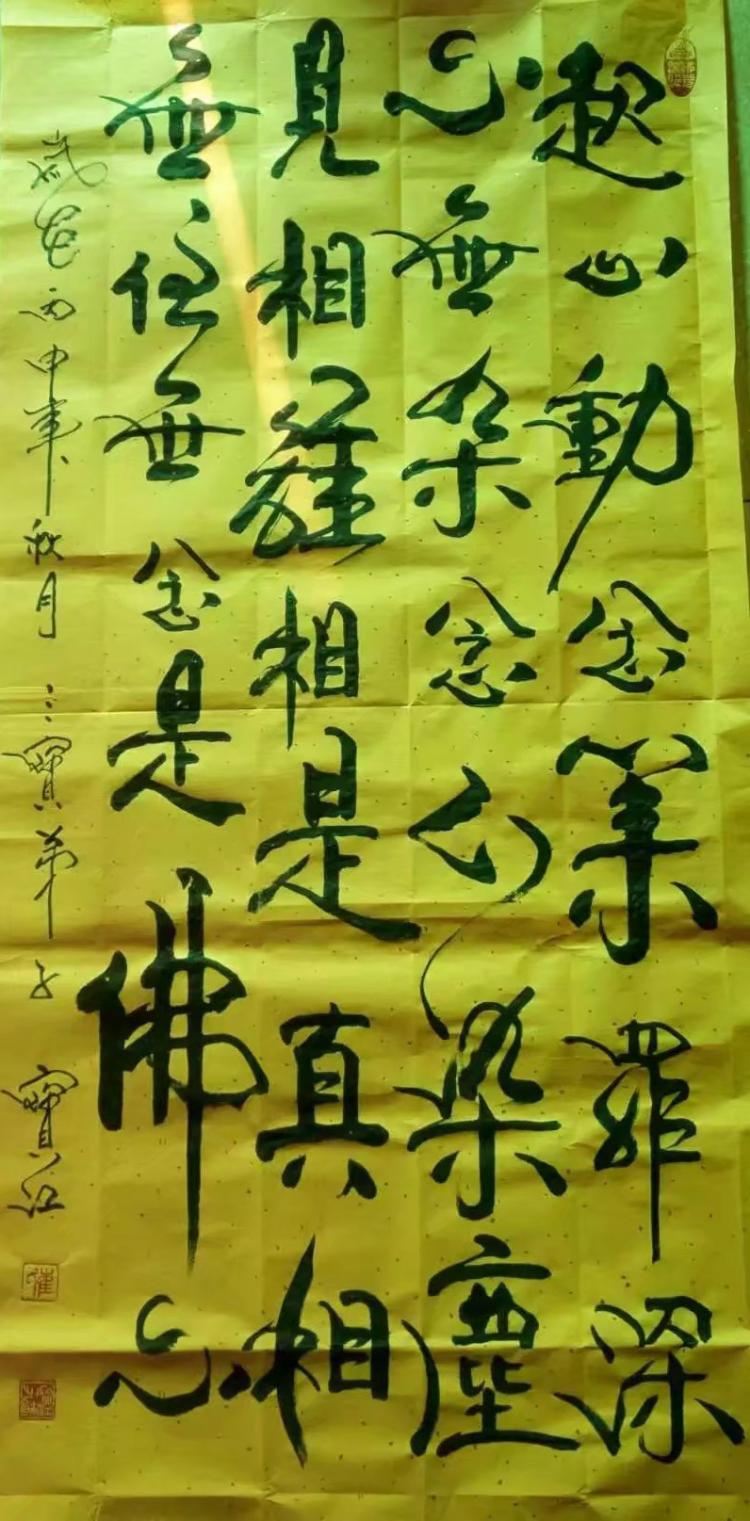 起心動念業罪深
心無染念染塵
見相離相是真相
無住無念是佛心
歲丙申年秋月三寶弟子寶江